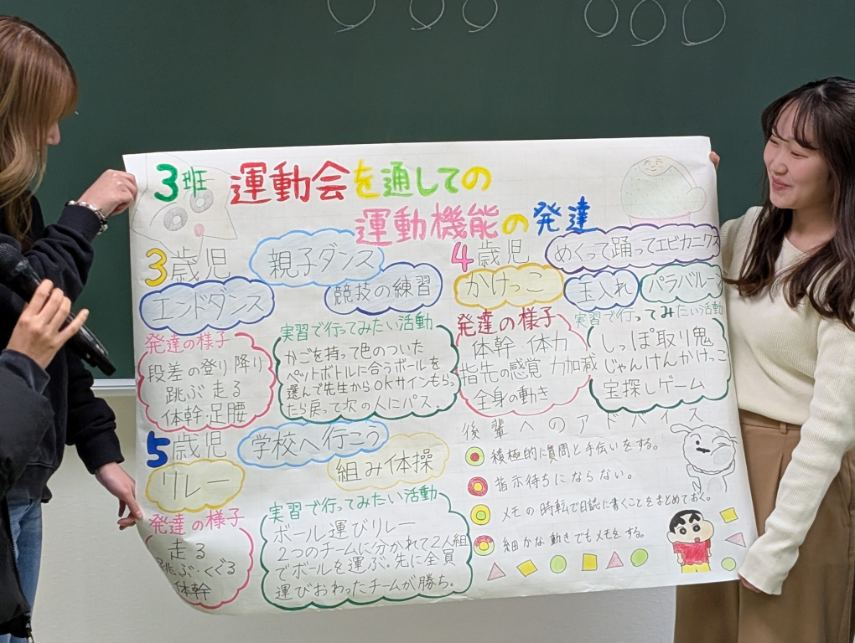 3班 運動会を通しての
運動機能の発達
3歳児
親子ダンス
エンドダンス
競技の練習
発達の様子
段差の登り降り
跳ぶ 走る
体幹 足腰
実習で行ってみたい活動
かごを持って色のついた
ペットボトルに合うボールを
選んで先生からOKサインもらっ
たら戻って次の人にパス。
4歳児
めくって踊ってエビカニクス
かけっこ
玉入れ
パラバルーン
発達の様子
体幹 体力
指先の感覚 力加減
全身の動き
実習で行ってみたい活動
しっぽ取り鬼
じゃんけんかけっこ
宝探しゲーム
5歳児
学校へ行こう
リレー
組み体操
発達の様子
走る
跳ぶ・くぐる
体幹
実習で行ってみたい活動
ボール運びリレー
2つのチームに分かれて2人組
でボールを運ぶ。先に全員
運びおわったチームが勝ち。
後輩へのアドバイス
積極的に質問と手伝いをする。
指示待ちにならない。
メモの時転で日誌に書くことをまとめておく。
細かな動きでもメモをする。